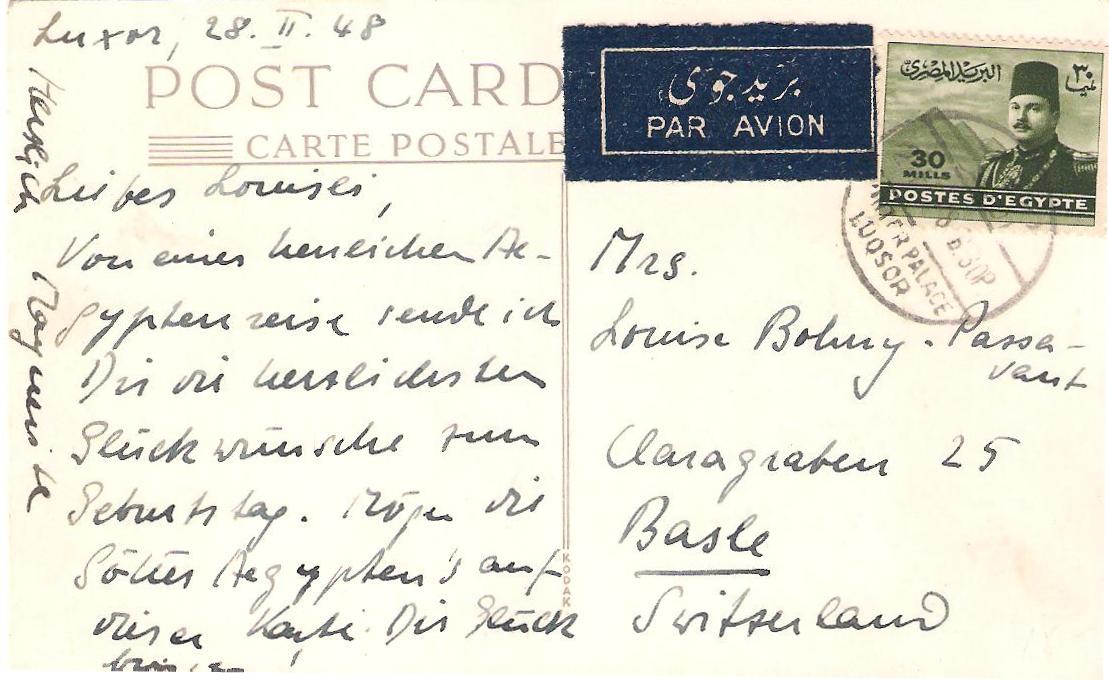 Luxor, 28. II. 48
POST CARD
CARTE POSTALE
Liebes Louisli,
Von einer herrlichen Ae-
gyptenreise sende ich
Dir die herzlichsten
Glückwünsche zum
Geburtstag. Mögen die
Götter Aegypten's auf
dieser Karte Dir Glück
bringen!
Herzlich
KODAK
بريد جوى
PAR AVION
البريد المصرى
٣٠
30
MILLS
POSTES D'EGYPTE
PALACE
LUQSOR
Mrs.
Louise Bohny-Passa-
vant
Claragraben 25
Basle
Switzerland